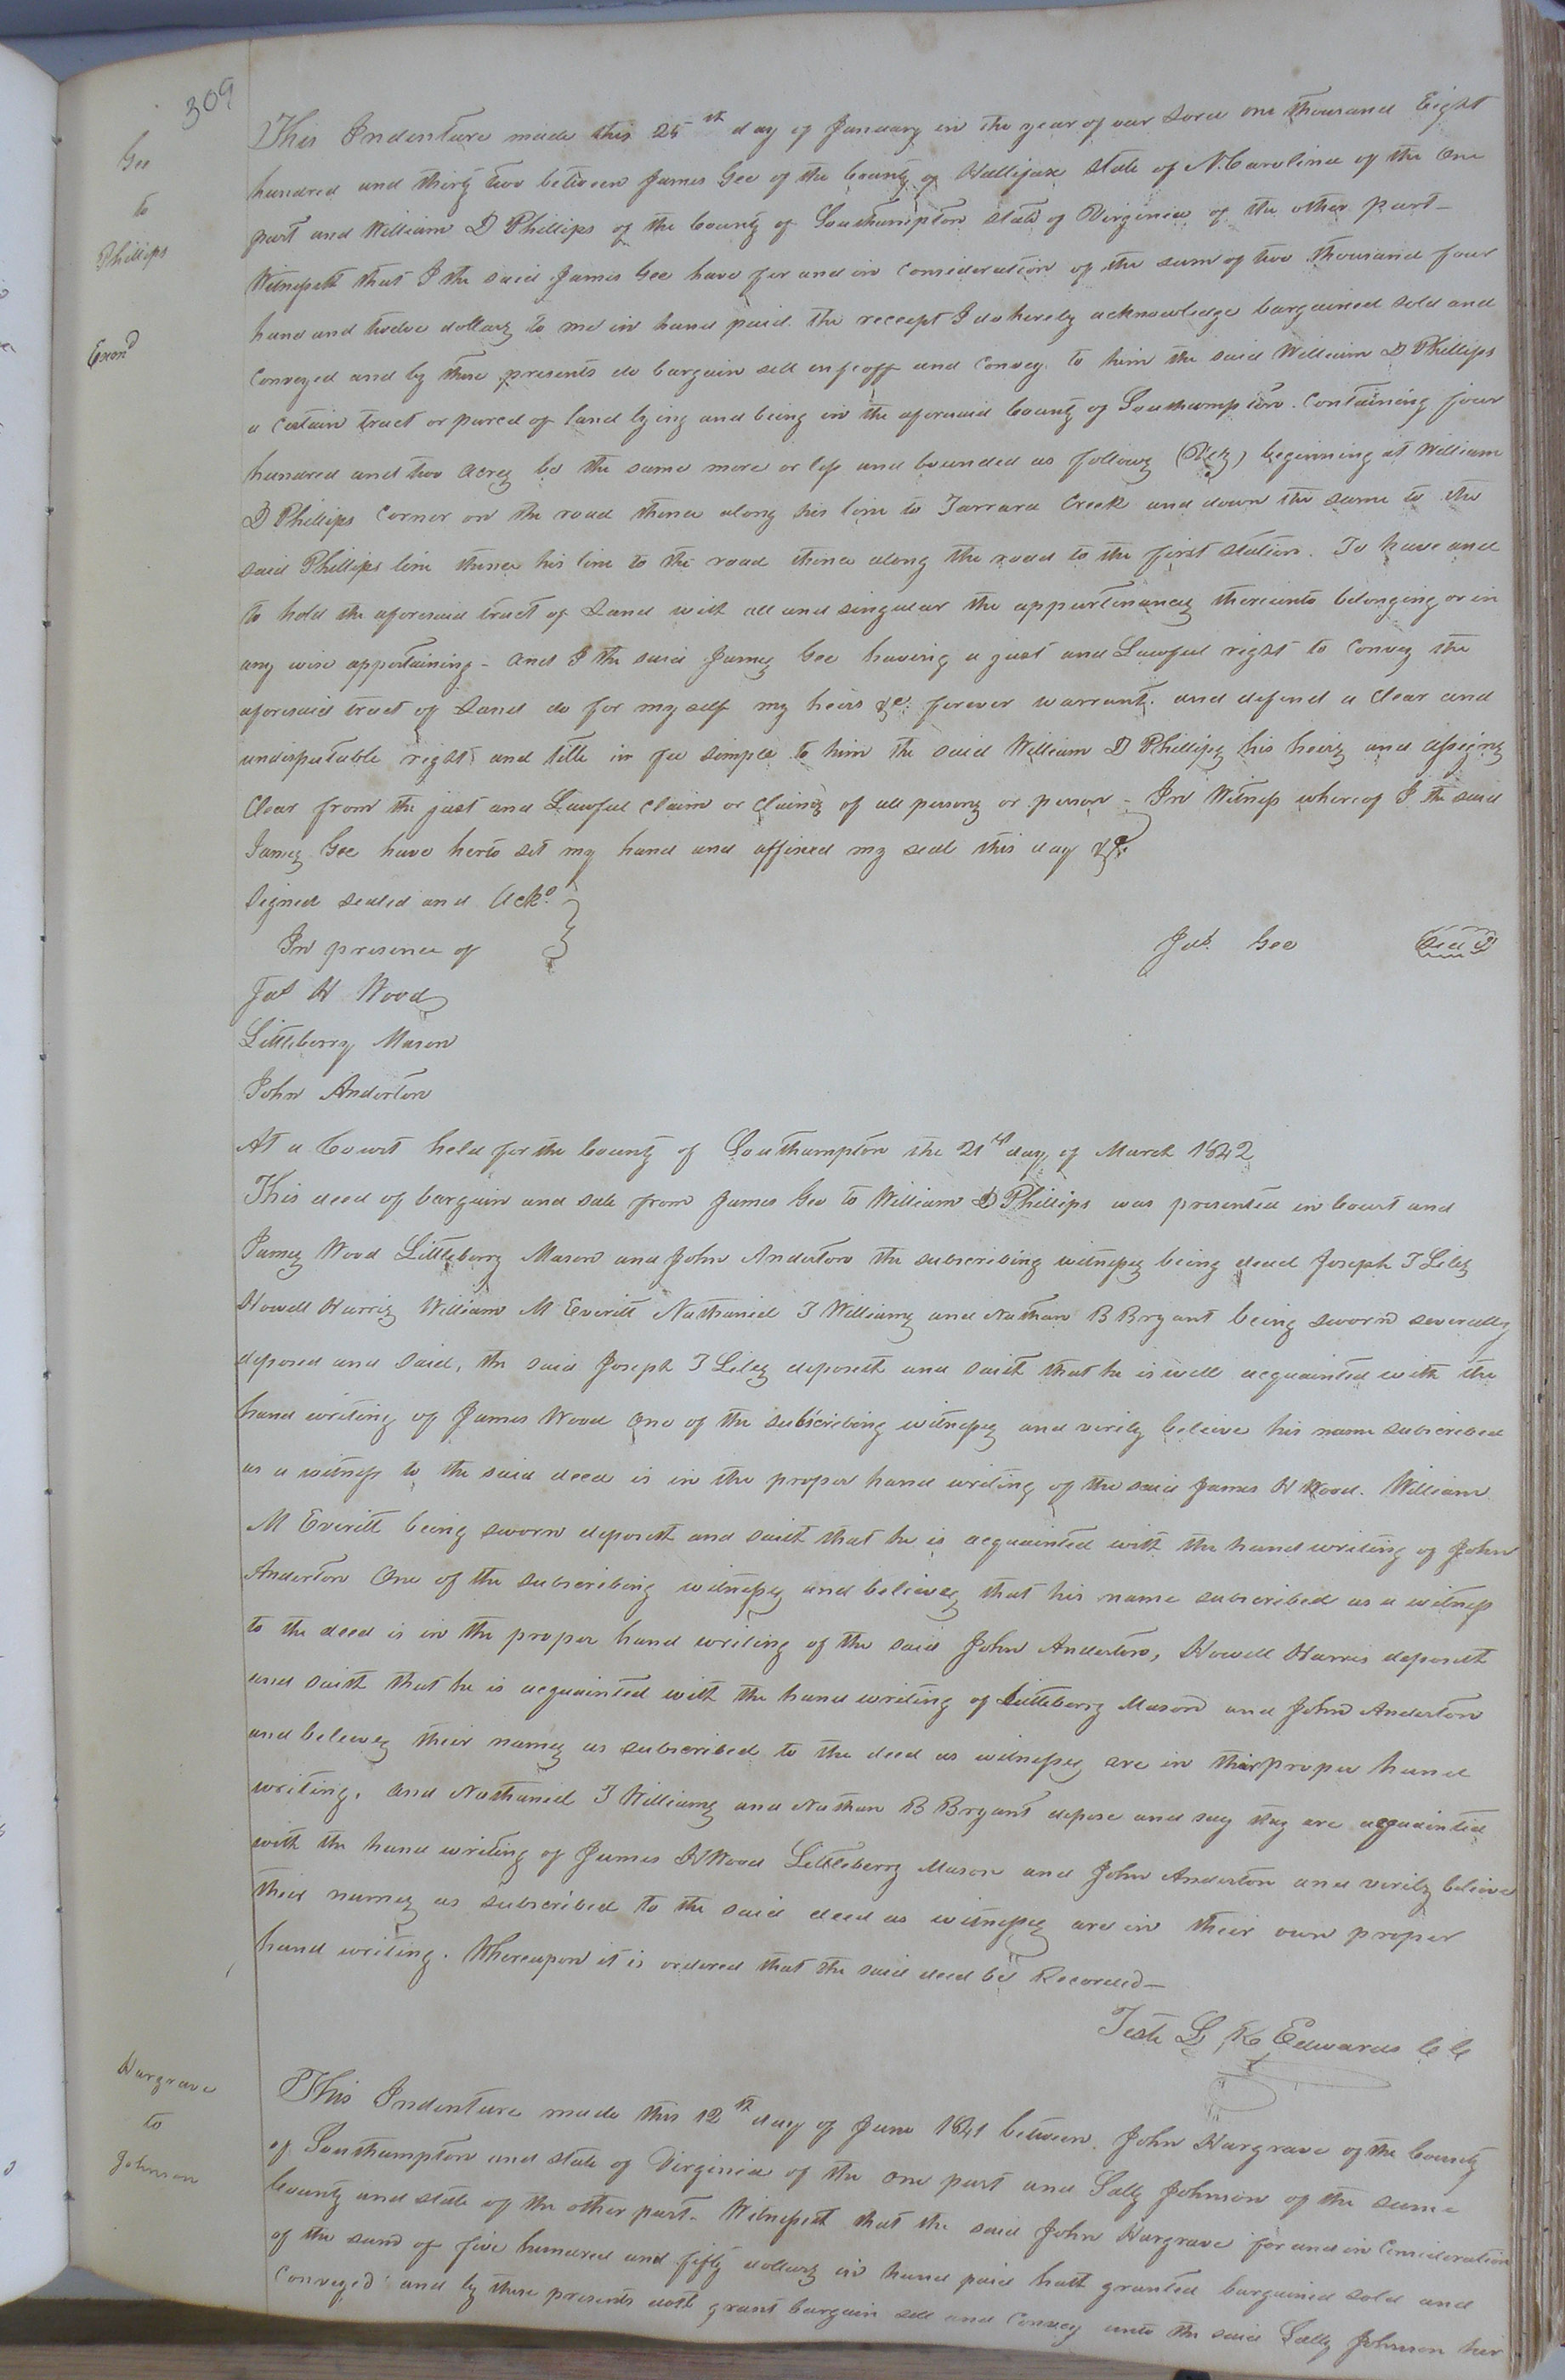 309
Gee
to
Phillips
Exmd
This Indenture made this 25th day of January in the year of our Lord one thousand Eight
hundred and thirty two between James Gee of the County of Hallifax State of N. Carolina of the one
part and William D Phillips of the County of Southampton State of Virginia of the other part–
Witnesseth that I the said James Gee have for and in consideration of the sum of two thousand four
hund and twelve dollars to me in hand paid the receept I do hereby acknowledge bargained sold and
Conveyed and by these presents do bargain sell enfeoff and convey to him the said William D Phillips
a certain tract or parcel of land lying and being in the aforesaid County of Southampton. Containing four
hundred and two acres be the same more or less and bounded as follows (Viz) beginning at William
D Phillips Corner on the road thence along his line to Tarrara Creek and down the same to the
said Phillips line thence his line to the road thence along the road to the first station. To have and
to hold the aforesaid tract of Land with all and singular the appurtenances thereunto belonging or in
any wise appertaining – and I the said James Gee having a just and Lawful right to convey the
aforesaid tract of Land do for myself my heirs &c. forever warrant. and defend a clear and
undisputable right and title in fee simple to him the said William D Phillips his heirs and assigns
Clear from the just and Lawful claim or claims of all persons or person – In Witness whereof I the said
James Gee have herto set my hand and affixed my seal this day &c.
Signed sealed and Ackd.
In presence of
Jas. Gee Seal
Jas H Wood
Littleberry Mason
John Anderton
At a Court held for the County of Southampton the 21st day of March 1842
This deed of bargain and sale from James Gee to William D Phillips was presented in Court and
James Wood Littleberry Mason and John Anderton the subscribing witnesses being dead Joseph T Liles
Howell Harris William M Everitt Nathaniel T Williams and Nathan B Bryant being sworn severally
deposed and said, the said Joseph T Liles deposeth and saith that he is well acquainted with the
hand writing of James Wood one of the subscribing witnesses and verily beleive his name subscribed
as a witness to the said deed is in the proper hand writing of the said James H Wood. William
M Everitt being sworn deposeth and saith that he is acquainted with the hand writing of John
Anderton One of the subscribing witnesses and believes that his name subscribed as a witness
to the deed is in the proper hand writing of the said John Anderton, Howell Harris deposeth
and saith that he is acquainted with the hand writing of Littleberry Mason and John Anderton
and beleives their names as subscribed to the deed as witnesses are in their proper hand
writing. And Nathaniel T Williams and Nathan B Bryant depose and say they are acquainted
with the hand writing of James H Wood Littleberry Mason and John Anderton and verily believe
their names as subscribed to the said deed as witnesses are in their own proper
hand writing. Whereupon it is ordered that the said deed be Recorded–
Teste L R Edwards C C
Hargrave
to
Johnson
This Indenture made this 12th day of June 1841 between John Hargrave of the County
of Southampton and state of Virginia of the one part and Sally Johnson of the same
County and state of the other part. Witnesseth that the said John Hargrave for and in Consideration
of the sum of five hundred and fifty dollars in hand paid hath granted bargained sold and
Conveyed and by these presents doth grant bargain sell and Convey unto the said Sally Johnson her